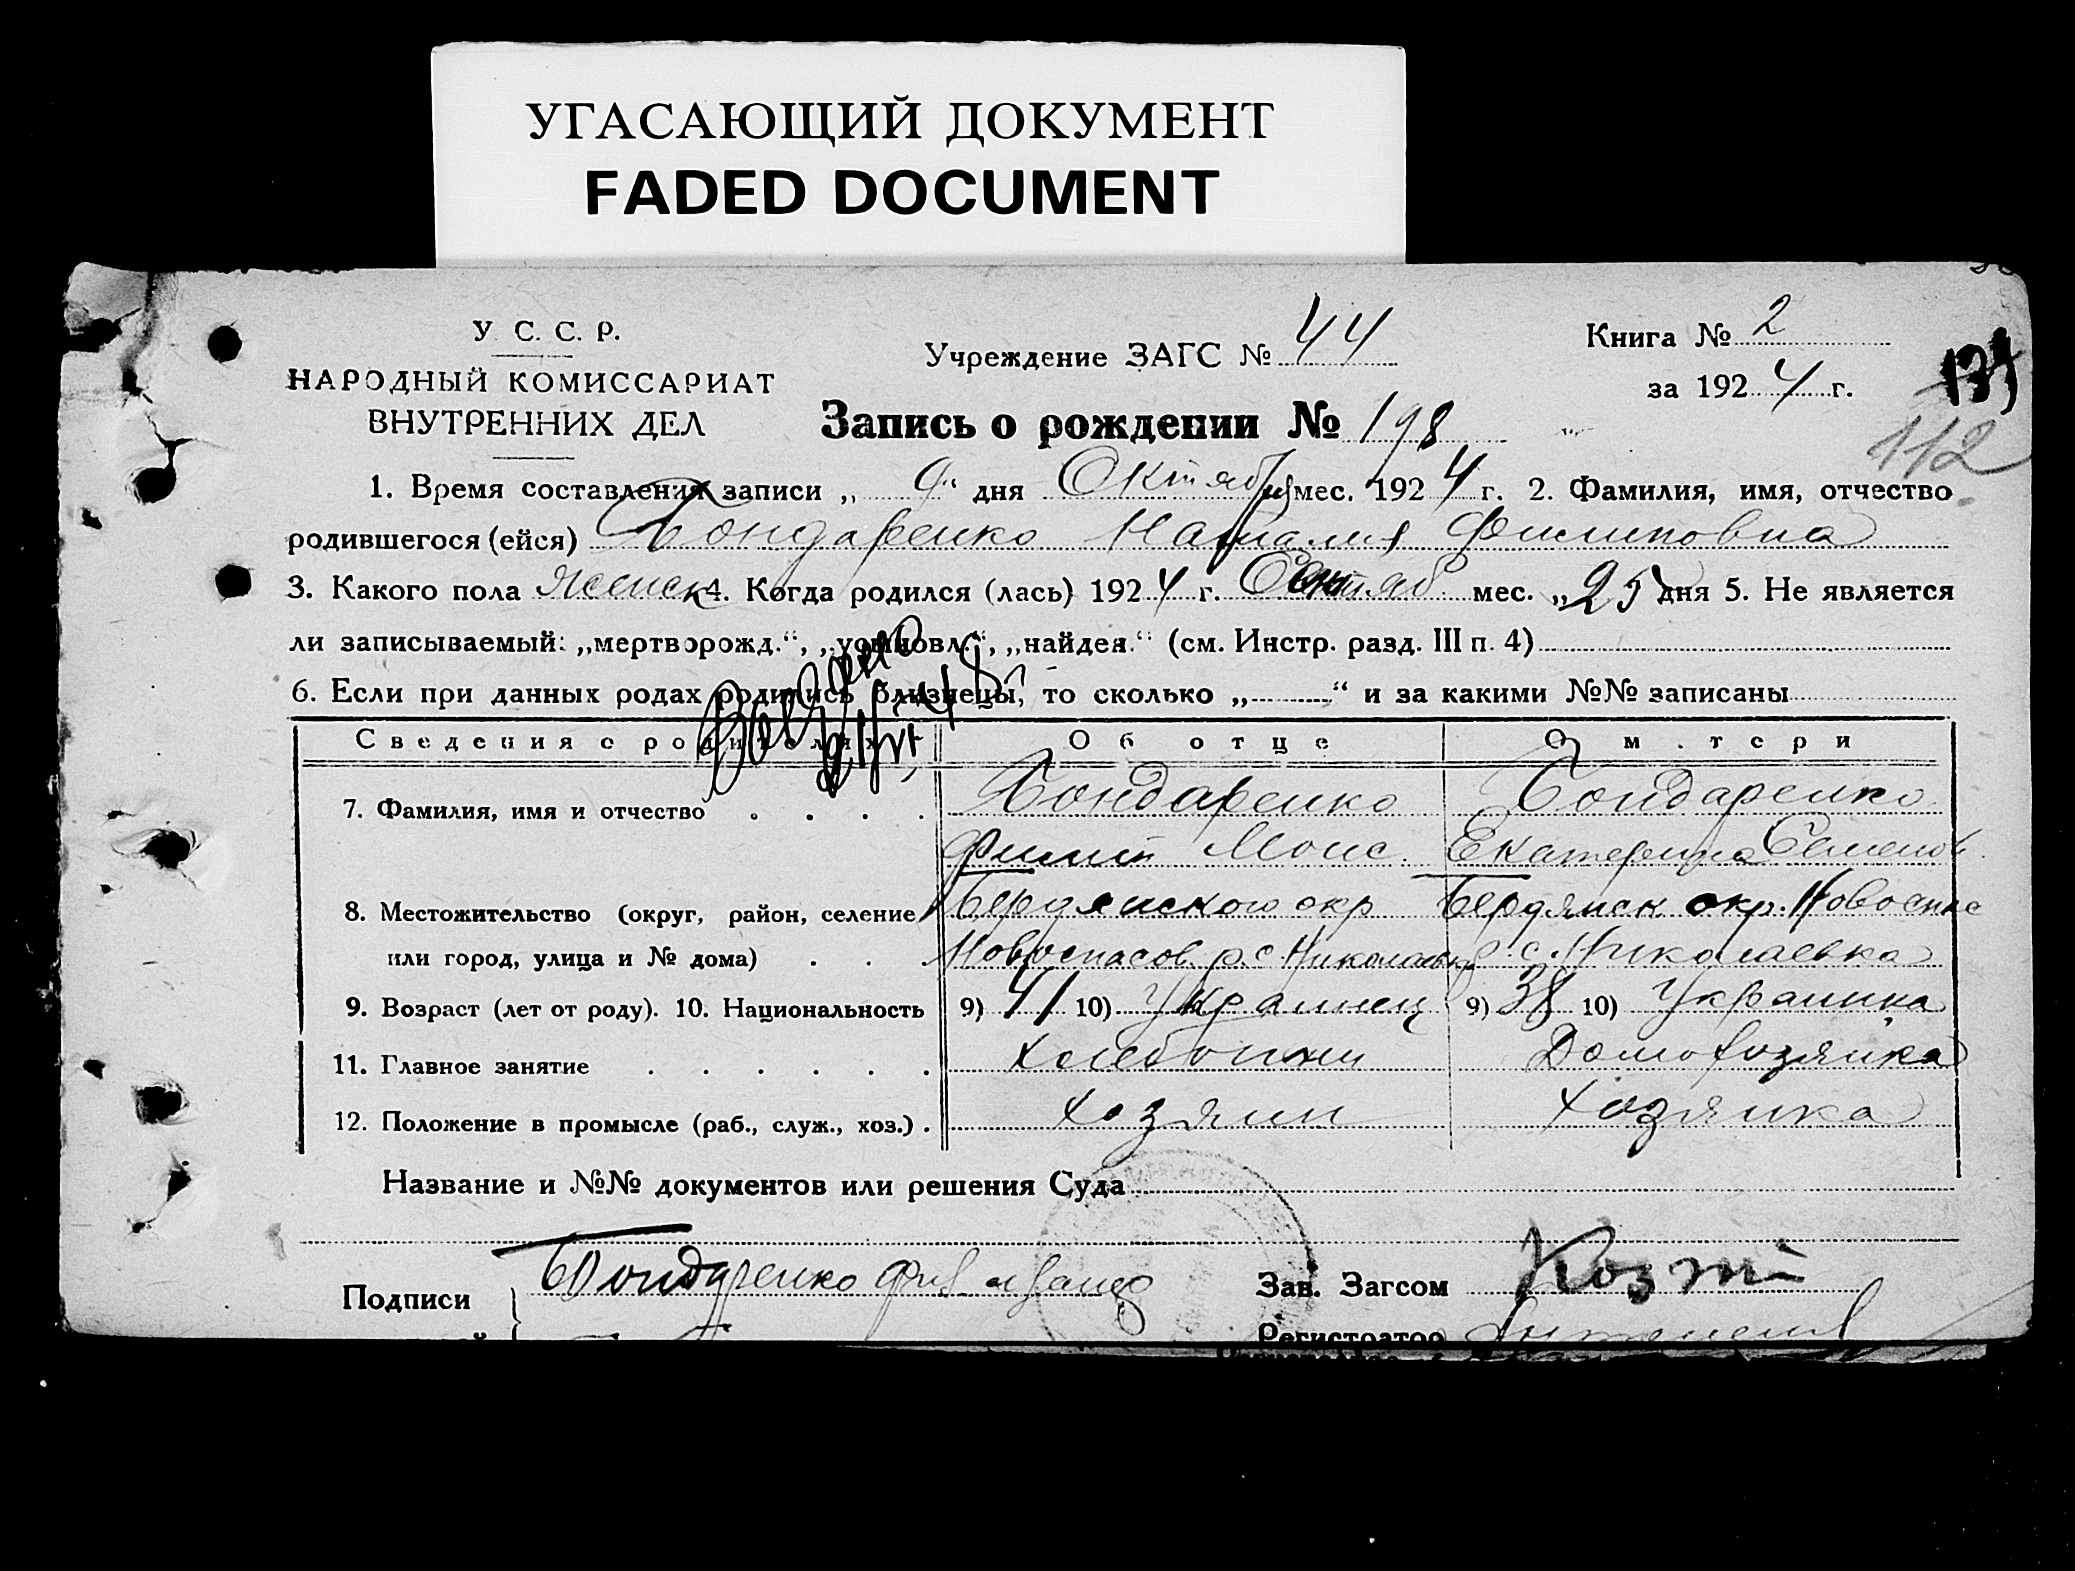 УГАСАЮЩИЙ ДОКУМЕНТ
FADED DOCUMENT
У. С. С. Р.
НАРОДНЫЙ КОМИССАРИАТ
ВНУТРЕННИХ ДЕЛ
Учреждение ЗАГС № 44
Книга № 2
за 1924 г.
112
Запись о рождении № 198
1. Время составления записи „ 9 “ дня Октября мес. 1924 г. 2. Фамилия, имя, отчество
родившегося (ейся) Бондаренко Наталия Филиповна
3. Какого пола женск 4. Когда родился (лась) 1924 г. Сентяб мес. „25“ дня 5. Не является
ли записываемый: „мертворожд.“, „усыновл.“, „найден.“ (см. Инстр. разд. III п. 4)
6. Если при данных родах родились близнецы, то сколько „ “ и за какими №№ записаны
Сведения о родителях Об отце О матери
7. Фамилия, имя и отчество Бондаренко Бондаренко
Филип Моис. Екатерина Семенов.
8. Местожительство (округ, район, селение Бердянского окр Бердянск окр. Новоспас
или город, улица и № дома) Новоспасов. р. с. Николаевка р. с. Николаевка
9. Возраст (лет от роду). 10. Национальность 9) 41 10) Украинец 9) 38 10) Украинка
11. Главное занятие Хлебопаш Домохозяйка
12. Положение в промысле (раб., служ., хоз.) Хозяин Хозяйка
Название и №№ документов или решения Суда
Подписи Бондаренко Зав. Загсом
Регистратор